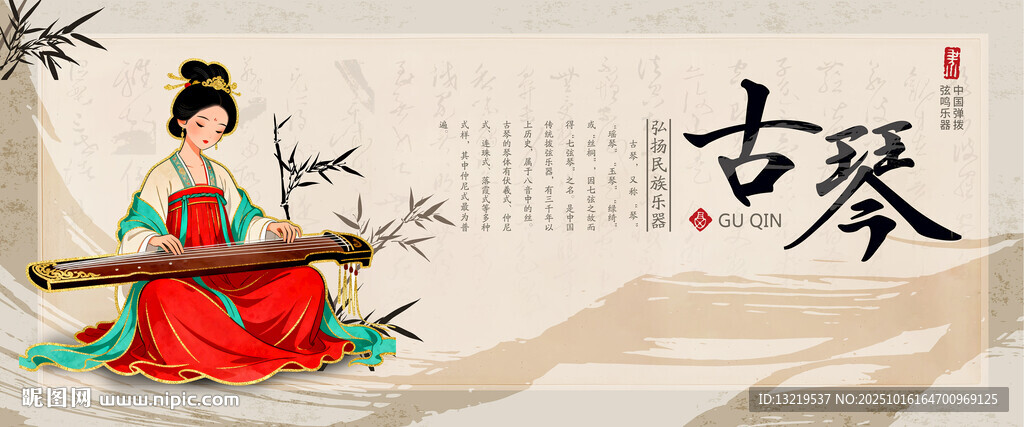 中国弹拨
弦鸣乐器
古琴
GU QIN
弘扬民族乐器
古琴，又称：琴：
：瑶琴：：玉琴：：绿绮：
或：丝桐：，因七弦之故而
得：七弦琴：之名，是中国
传统拨弦乐器，有三千年以
上历史，属于八音中的丝。
古琴的琴体有伏羲式、仲尼
式、连珠式、落霞式等多种
式样，其中仲尼式最为普
遍
昵图网 www.nipic.com
ID:13219537 NO:20251016164700969125